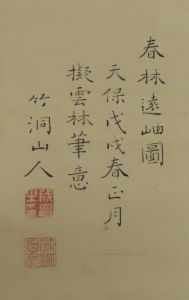 春林遠岫圖
天保戊戌春正月
擬雲林筆意
竹洞山人